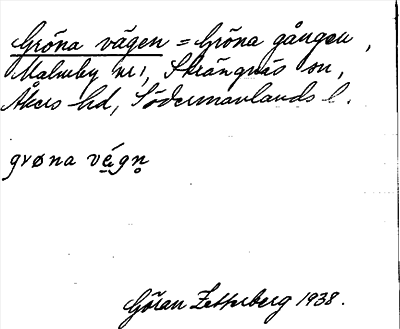 Gröna vägen = Gröna gången,
Malmby nr 1, Strängnäs sn,
Åkers hd, Södermanlands l.
grøna vég̣n̥
Göran Zetterberg 1938.